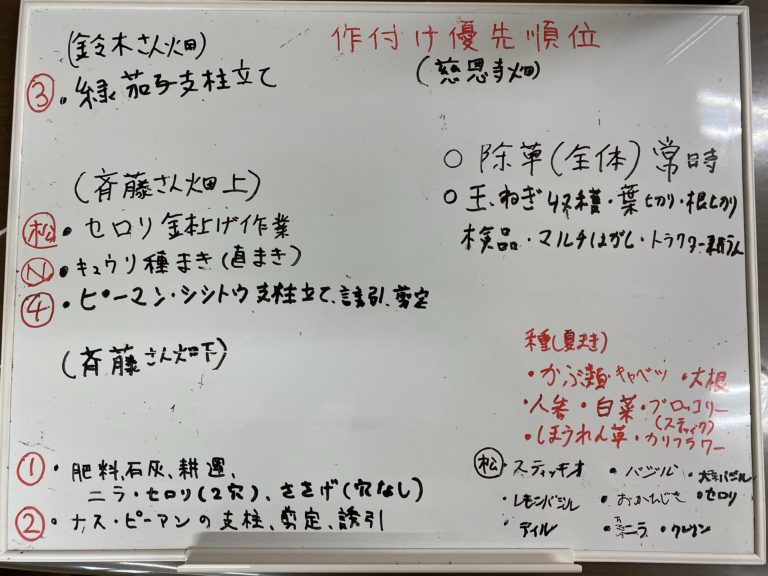 作付け優先順位
(鈴木さん畑)
③・緑茄子支柱立て
(斉藤さん畑上)
松・セロリ 金上げ作業
N・キュウリ種まき(直まき)
④・ピーマン・シシトウ支柱立て、誘引、剪定
(斉藤さん畑下)
①・肥料、石灰、耕運、
ニラ・セロリ(2穴)、ささげ(穴なし)
②・ナス・ピーアンの支柱、剪定、誘引
(慈恩寺畑)
○ 除草(全体)常時
○ 玉、ねぎ収穫・葉切り・根切り
検品・マルチはがし・トラクター耕うん
種(夏まき)
・かぶ類・キャベツ ・大根
・人参・白菜・ブロッコリー
(スティック)
・ほうれん草・カリフラワー
松・スティッキオ ・バジル ・バジル
・レモンバジル ・おかひじき ・セロリ
・ディル ・ニラ